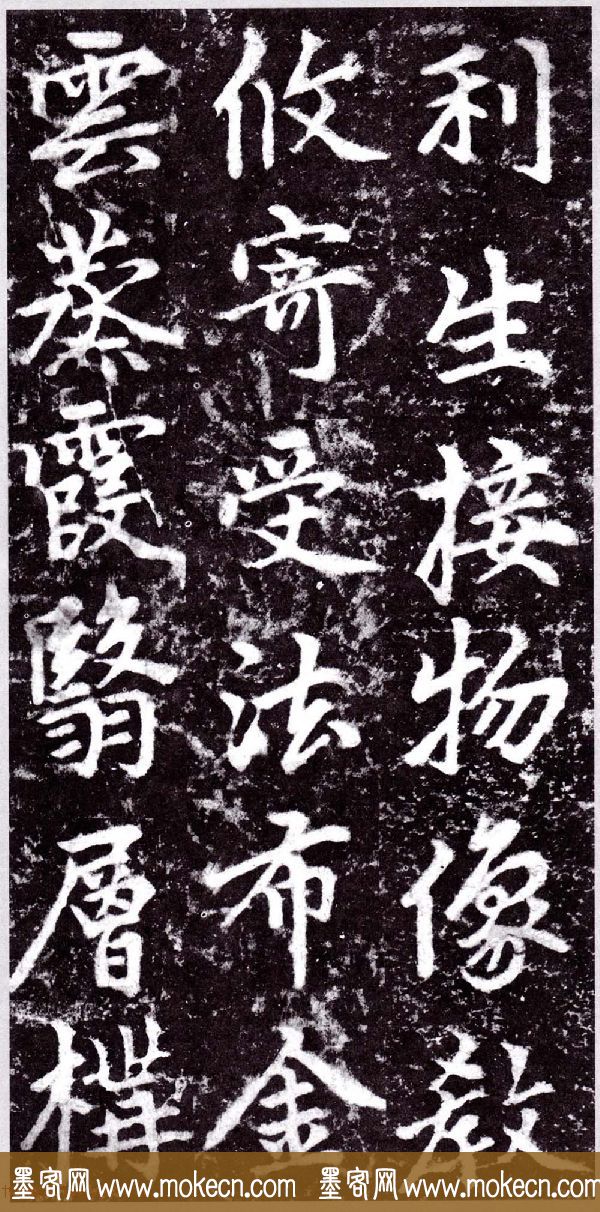 利生接物像教
攸寄受法布金
雲蓁霞翳層構
墨客网 www.mokecn.com 墨客网 www.mokecn.com